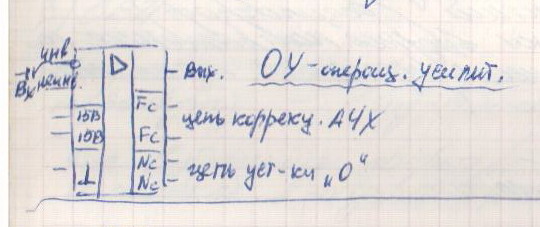 инв
Вх неинв.
▷
Вых.
ОУ-операц. усилит.
Fc
15В
15В
Fc
цепь коррекц. АЧХ
⊥
Nc
Nc
цепь уст-ки „0“